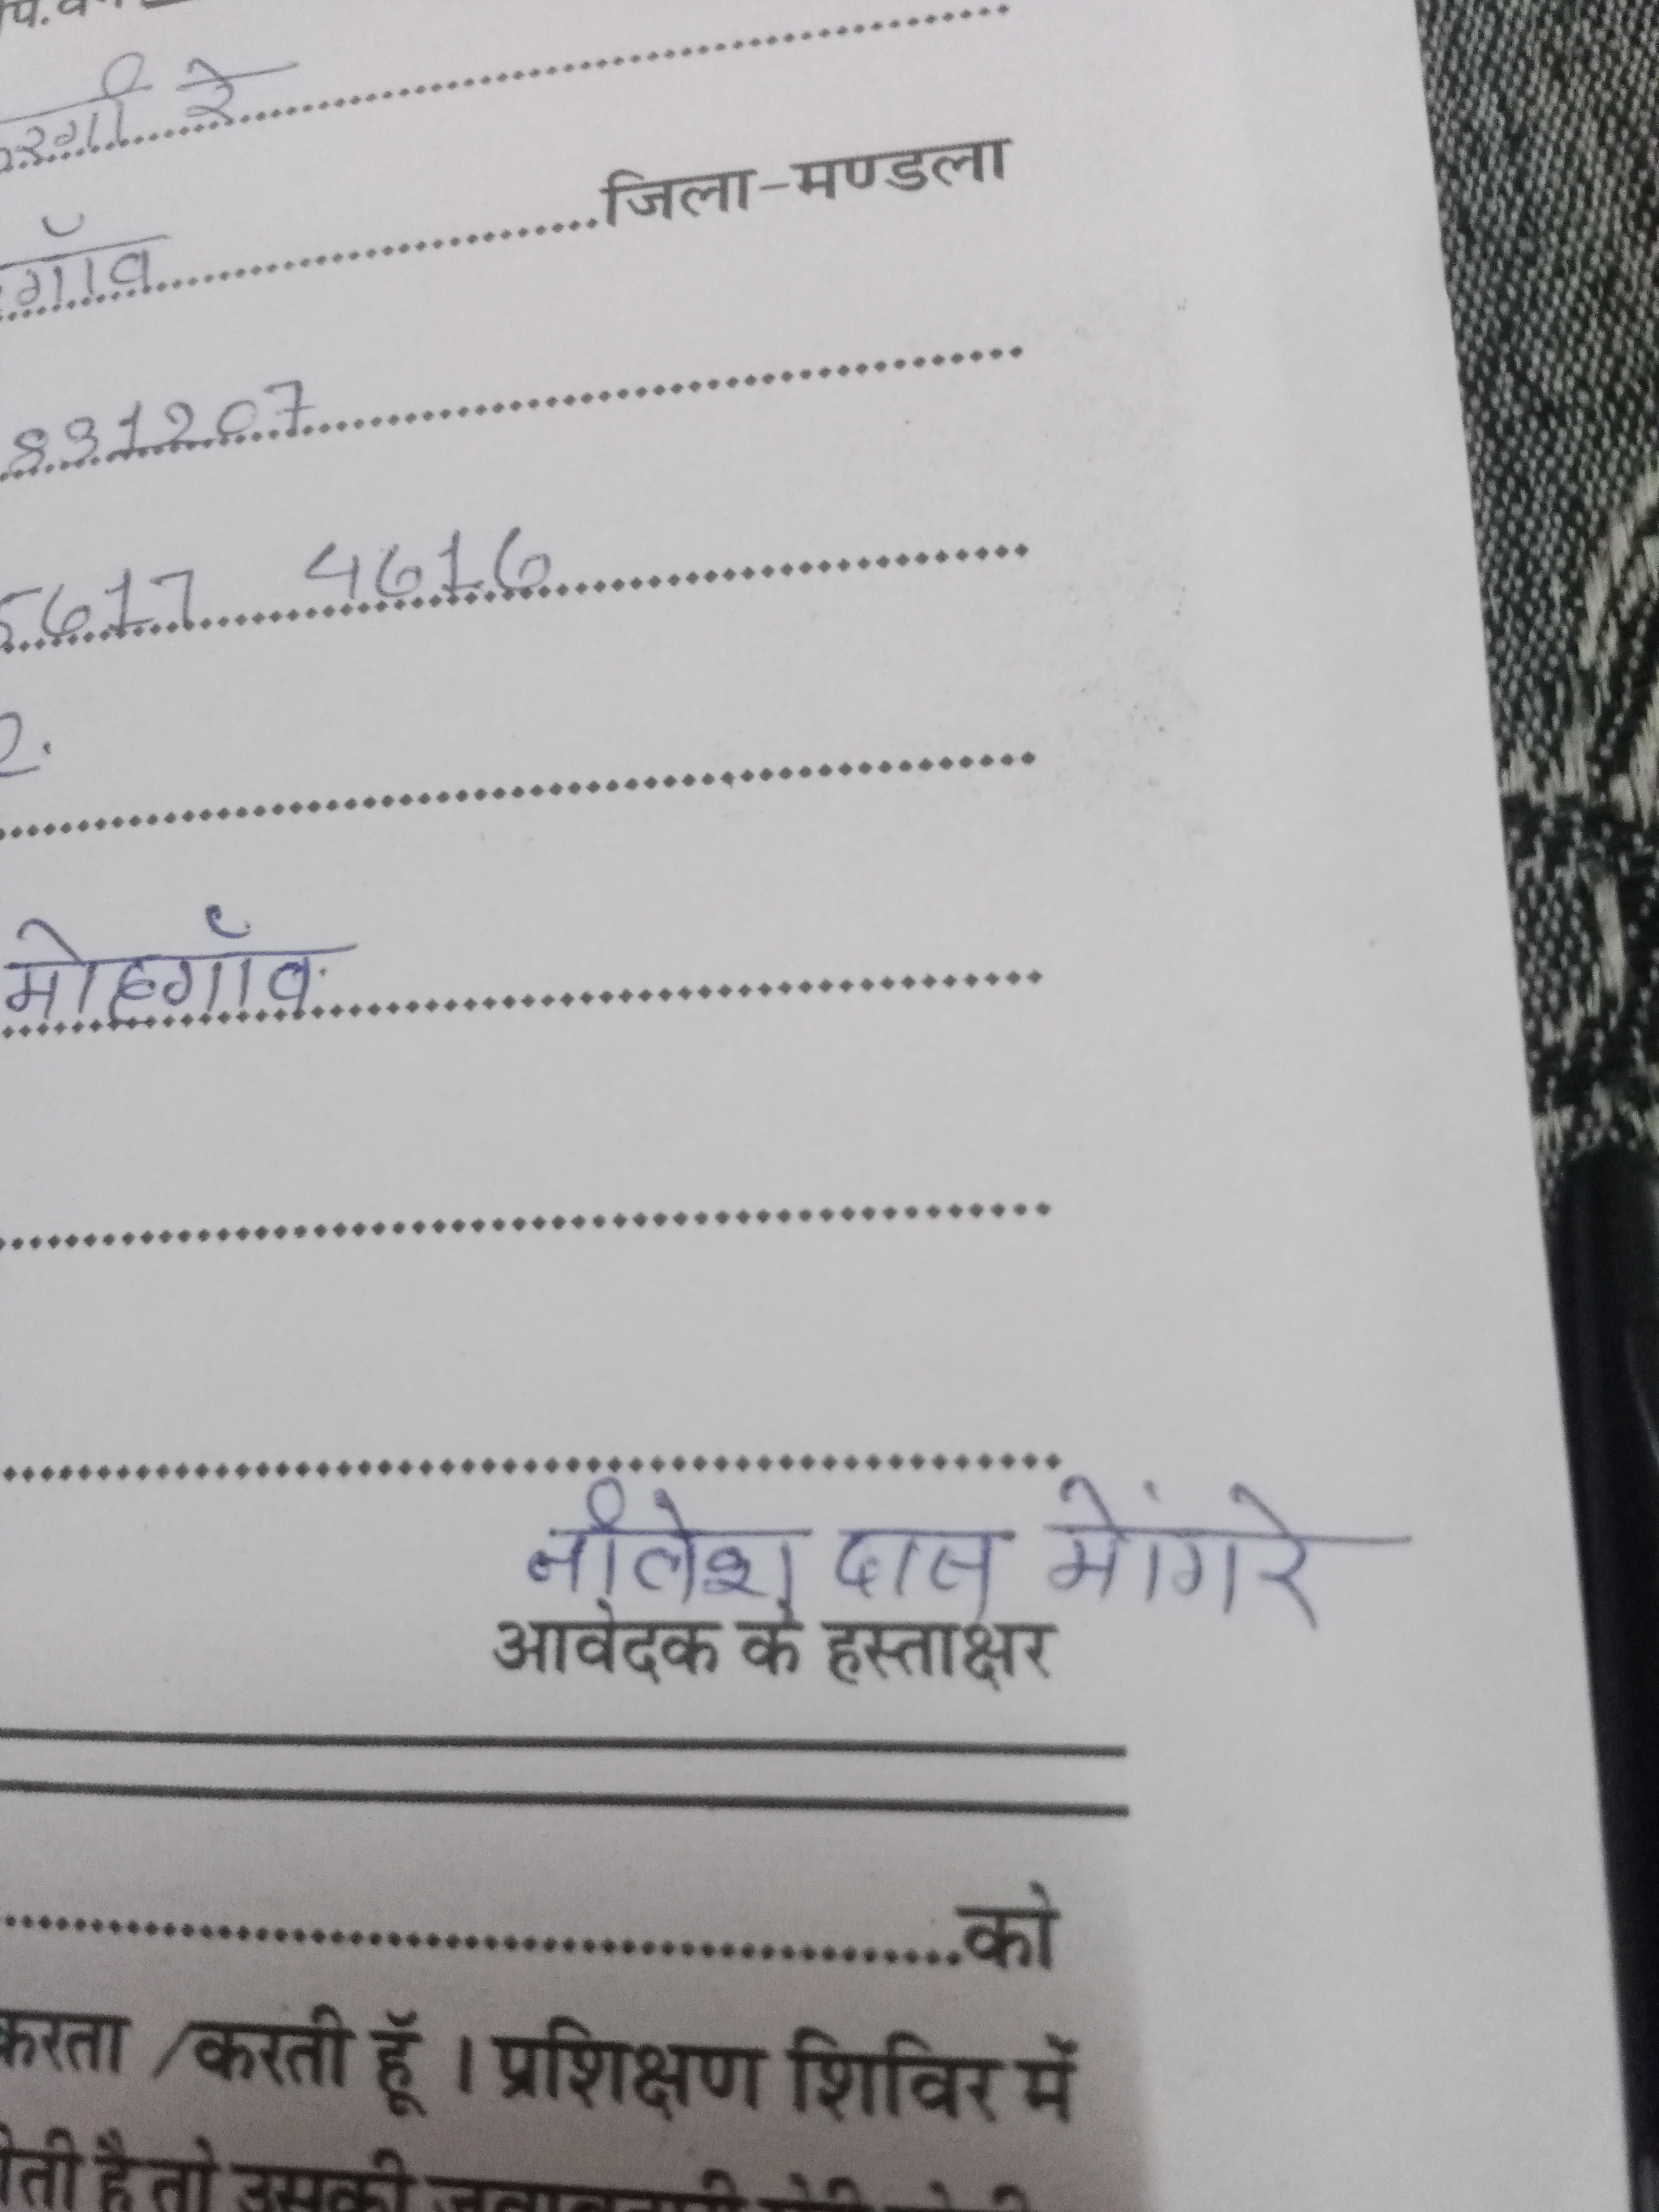 रे
जिला-मण्डला
891207
5617 4616
2.
मोहगाँव
नीलेश दास मोंगरे
आवेदक के हस्ताक्षर
को
करता /करती हूँ । प्रशिक्षण शिविर में
है तो उसकी